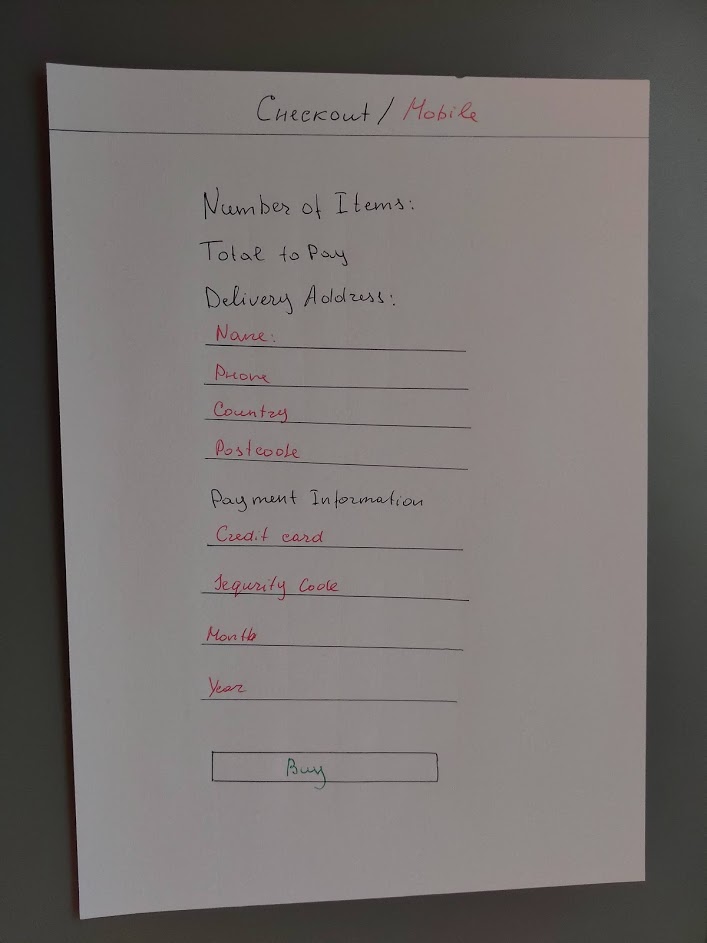 Checkout / Mobile
Number of Items:
Total to Pay
Delivery Address:
Name:
Phone
Country
Postcode
Payment Information
Credit card
Sequrity Code
Month
Year
Buy